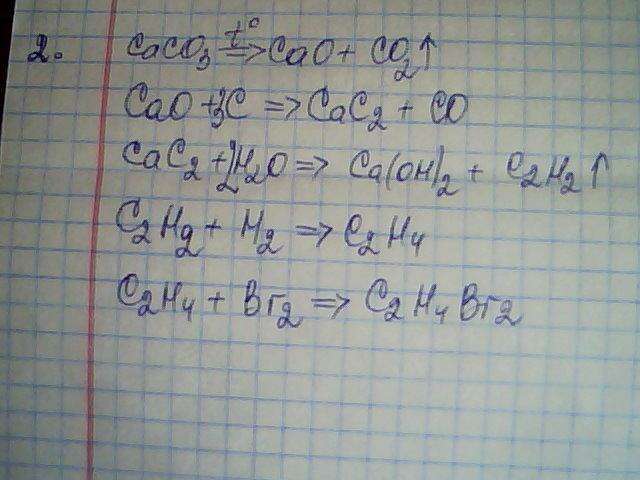 2. CaCO₃ t°⇒ CaO + CO₂↑
CaO + 3C ⇒ CaC₂ + CO
CaC₂ + 2H₂O ⇒ Ca(OH)₂ + C₂H₂↑
C₂H₂ + H₂ ⇒ C₂H₄
C₂H₄ + Br₂ ⇒ C₂H₄Br₂